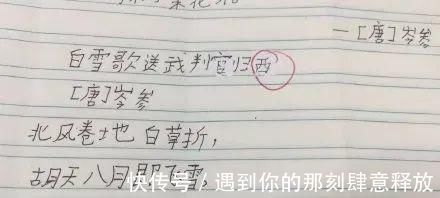 —[唐]岑参
白雪歌送武判官归西
[唐]岑参
北风卷地白草折，
胡天八月即飞雪，
快传号 / 遇到你的那刻肆意释放